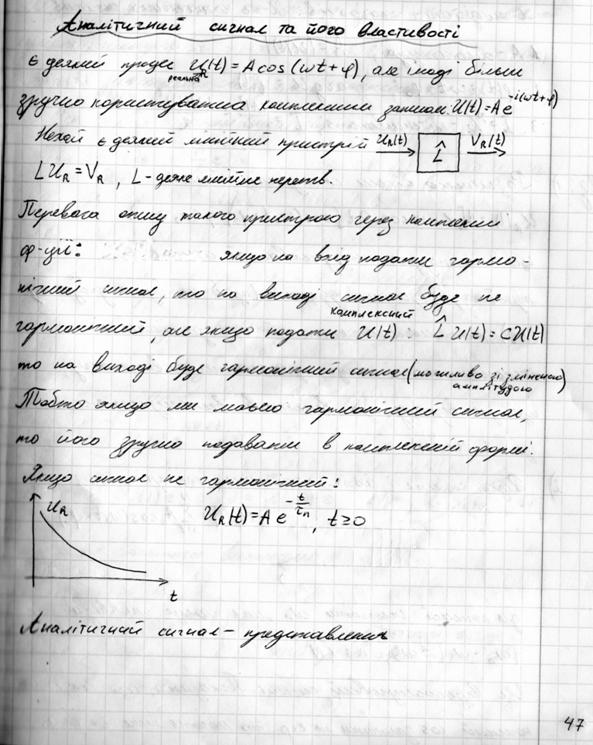 Аналітичний сигнал та його властивості
Є деякий процес U_R(t)=A cos(ωt+φ), але іноді більш
реальна
зручно користуватися комплексним записом: U(t)=Ae^{-i(ωt+φ)}
Нехай є деякий лінійний пристрій U_R(t) → L̂ V_R(t) →
LU_R=V_R, L-деяке лінійне перетв.
Перевага опису такого пристрою через комплексні
ф-ції: якщо на вхід подати гармо-
нічний сигнал, то на виході сигнал буде не
комплексний
гармонічний, але якщо подати U(t): L̂U(t)=CU(t)
то на виході буде гармонічний сигнал (можливо зі зміненою
амплітудою)
Тобто якщо ми маємо гармонічний сигнал,
то його зручно подавати в комплексній формі.
Якщо сигнал не гармонічний:
U_R
U_R(t)=Ae^{-t/τ_n}, t≥0
t
Аналітичний сигнал - представлення
47